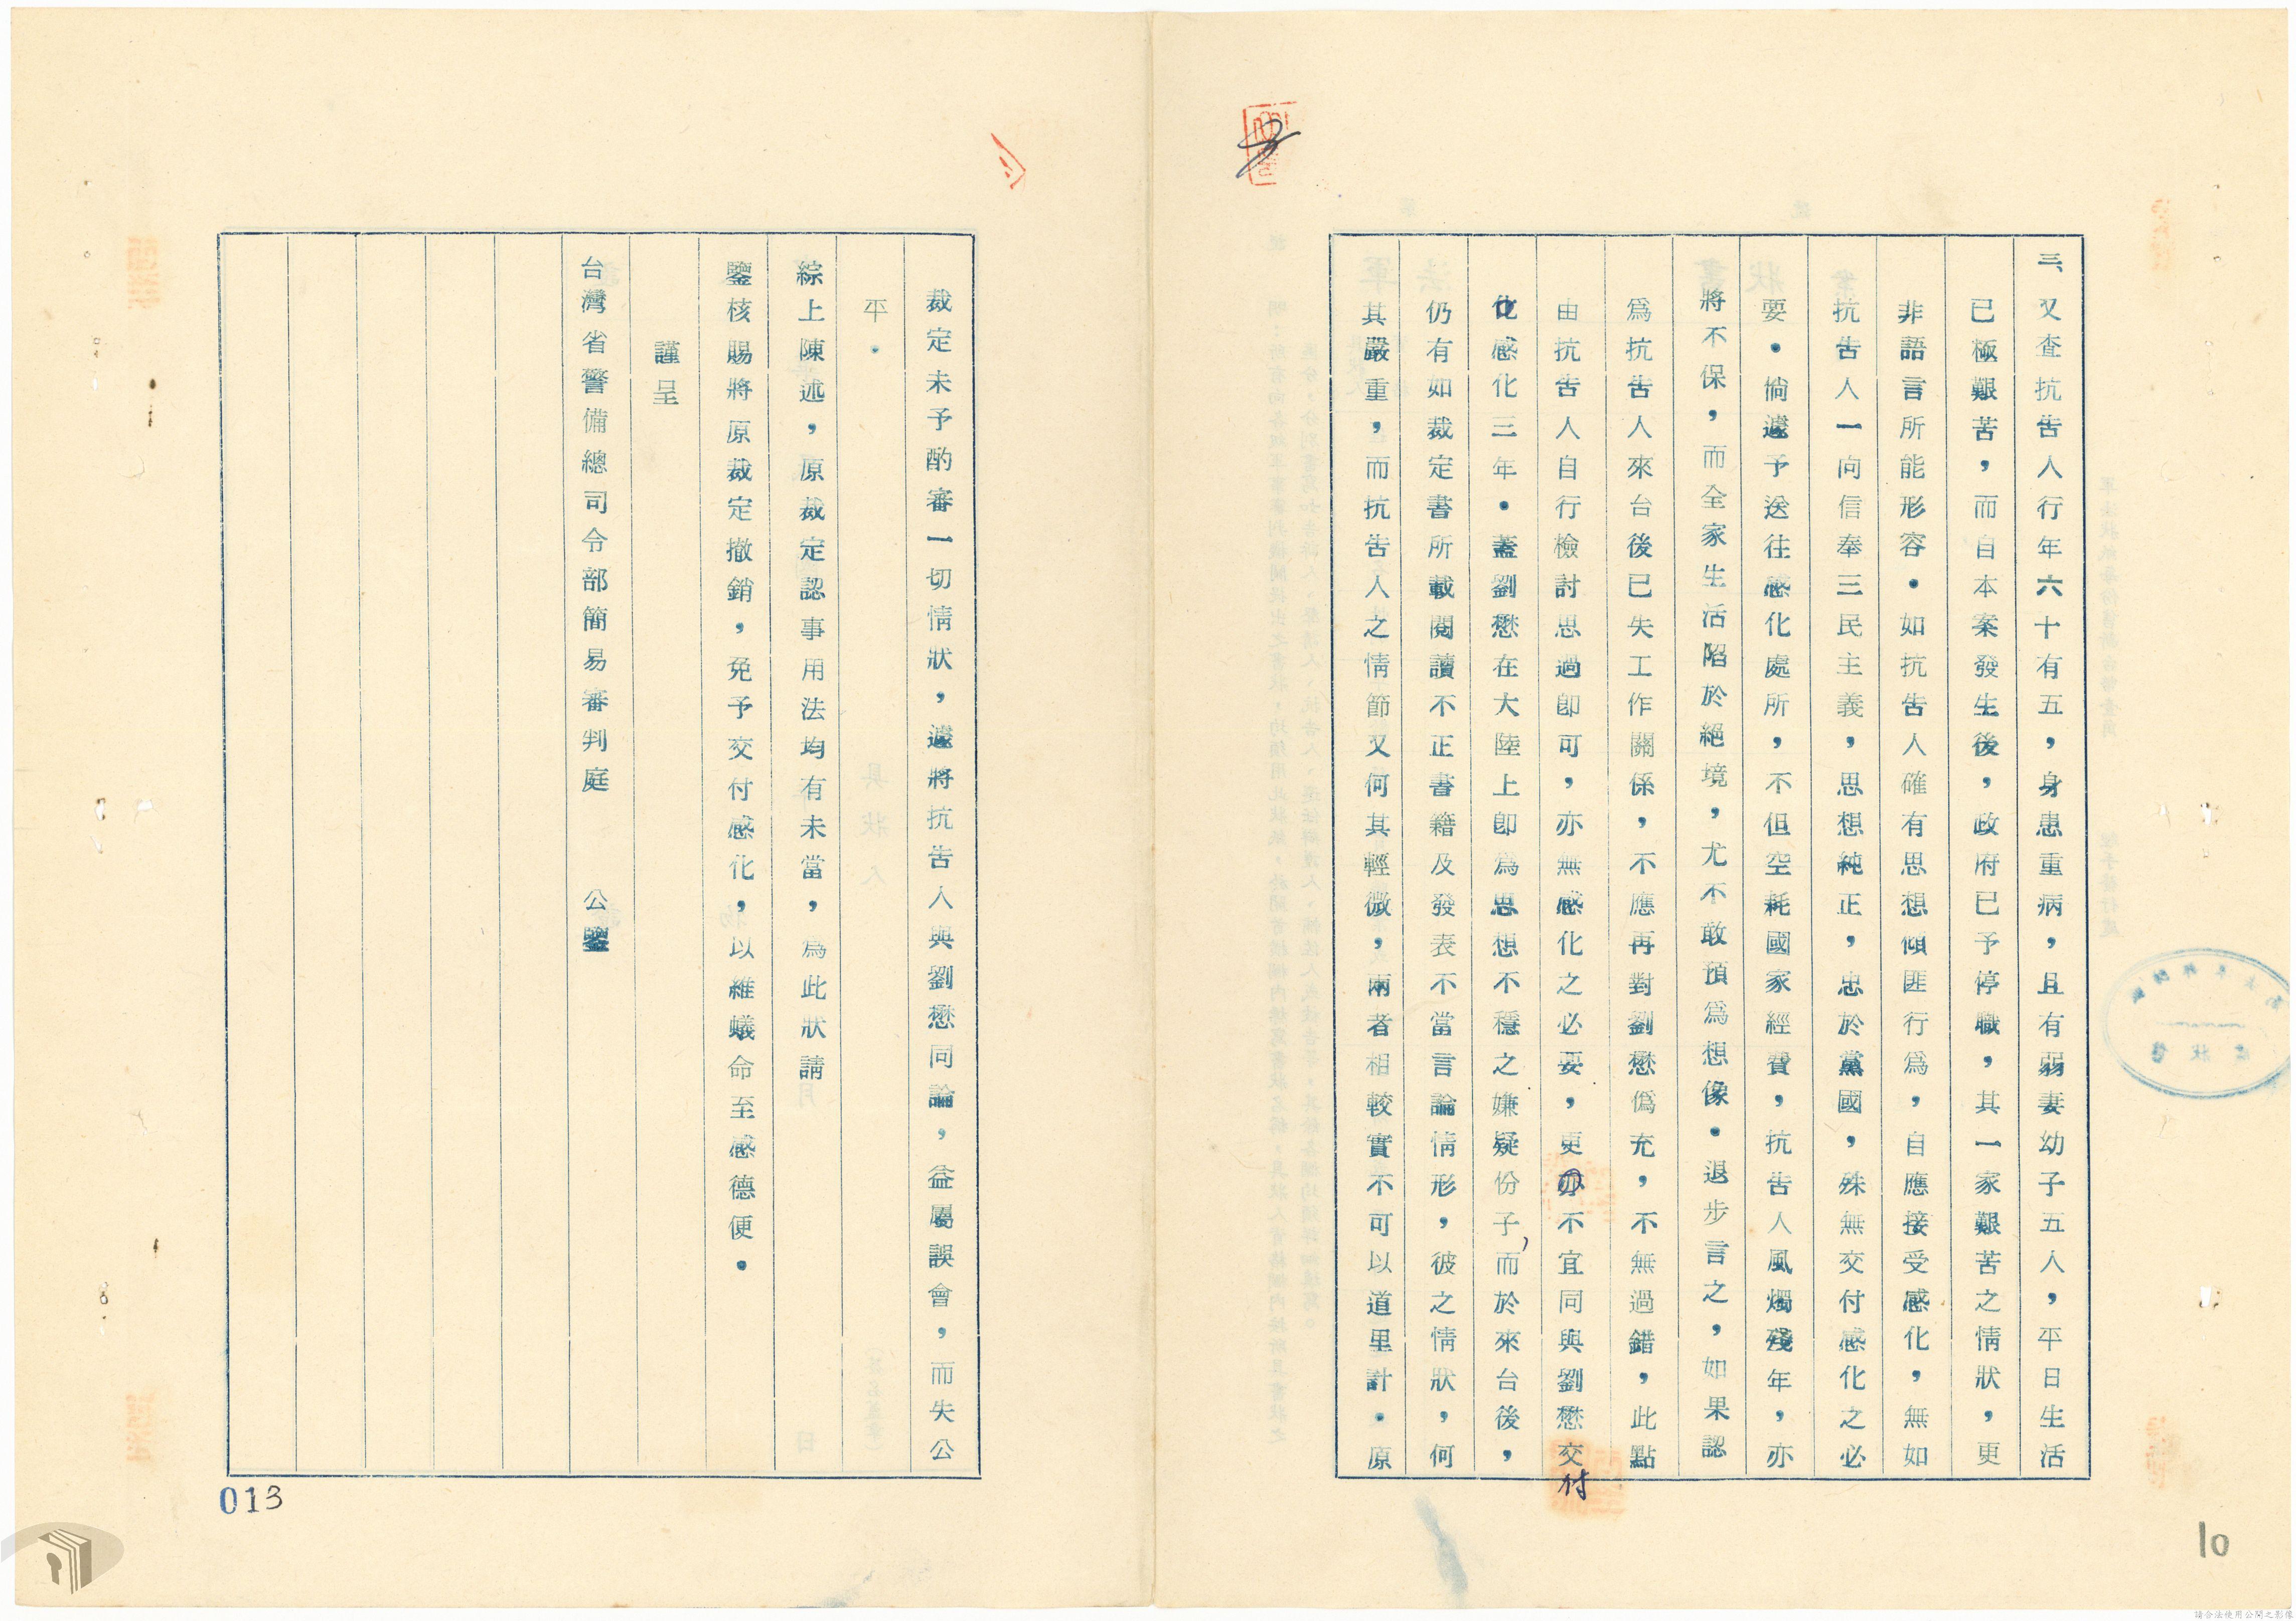 三、又查抗告人行年六十有五，身患重病，且有弱妻幼子五人，平日生活
已極艱苦，而自本案發生後，政府已予停職，其一家艱苦之情狀，更
非語言所能形容。如抗告人確有思想傾匪行為，自應接受感化，無如
抗告人一向信奉三民主義，思想純正，忠於黨國，殊無交付感化之必
要。倘遽予送往感化處所，不但空耗國家經費，抗告人風燭殘年，亦
將不保，而全家生活陷於絕境，尤不敢預為想像。退步言之，如果認
為抗告人來台後已失工作關係，不應再對劉懋偽充，不無過錯，此點
由抗告人自行檢討思過即可，亦無感化之必要，更亦不宜同與劉懋交付
化感化三年。蓋劉懋在大陸上即為思想不穩之嫌疑份子，而於來台後，
仍有如裁定書所載閱讀不正書籍及發表不當言論情形，彼之情狀，何
其嚴重，而抗告人之情節又何其輕微，兩者相較實不可以道里計。原
裁定未予酌審一切情狀，遽將抗告人與劉懋同論，益屬誤會，而失公
平。
綜上陳述，原裁定認事用法均有未當，為此狀請
鑒核賜將原裁定撤銷，免予交付感化，以維蟻命至感德便。
謹呈
台灣省警備總司令部簡易審判庭　公鑒
013
10
請合法使用公開之影像